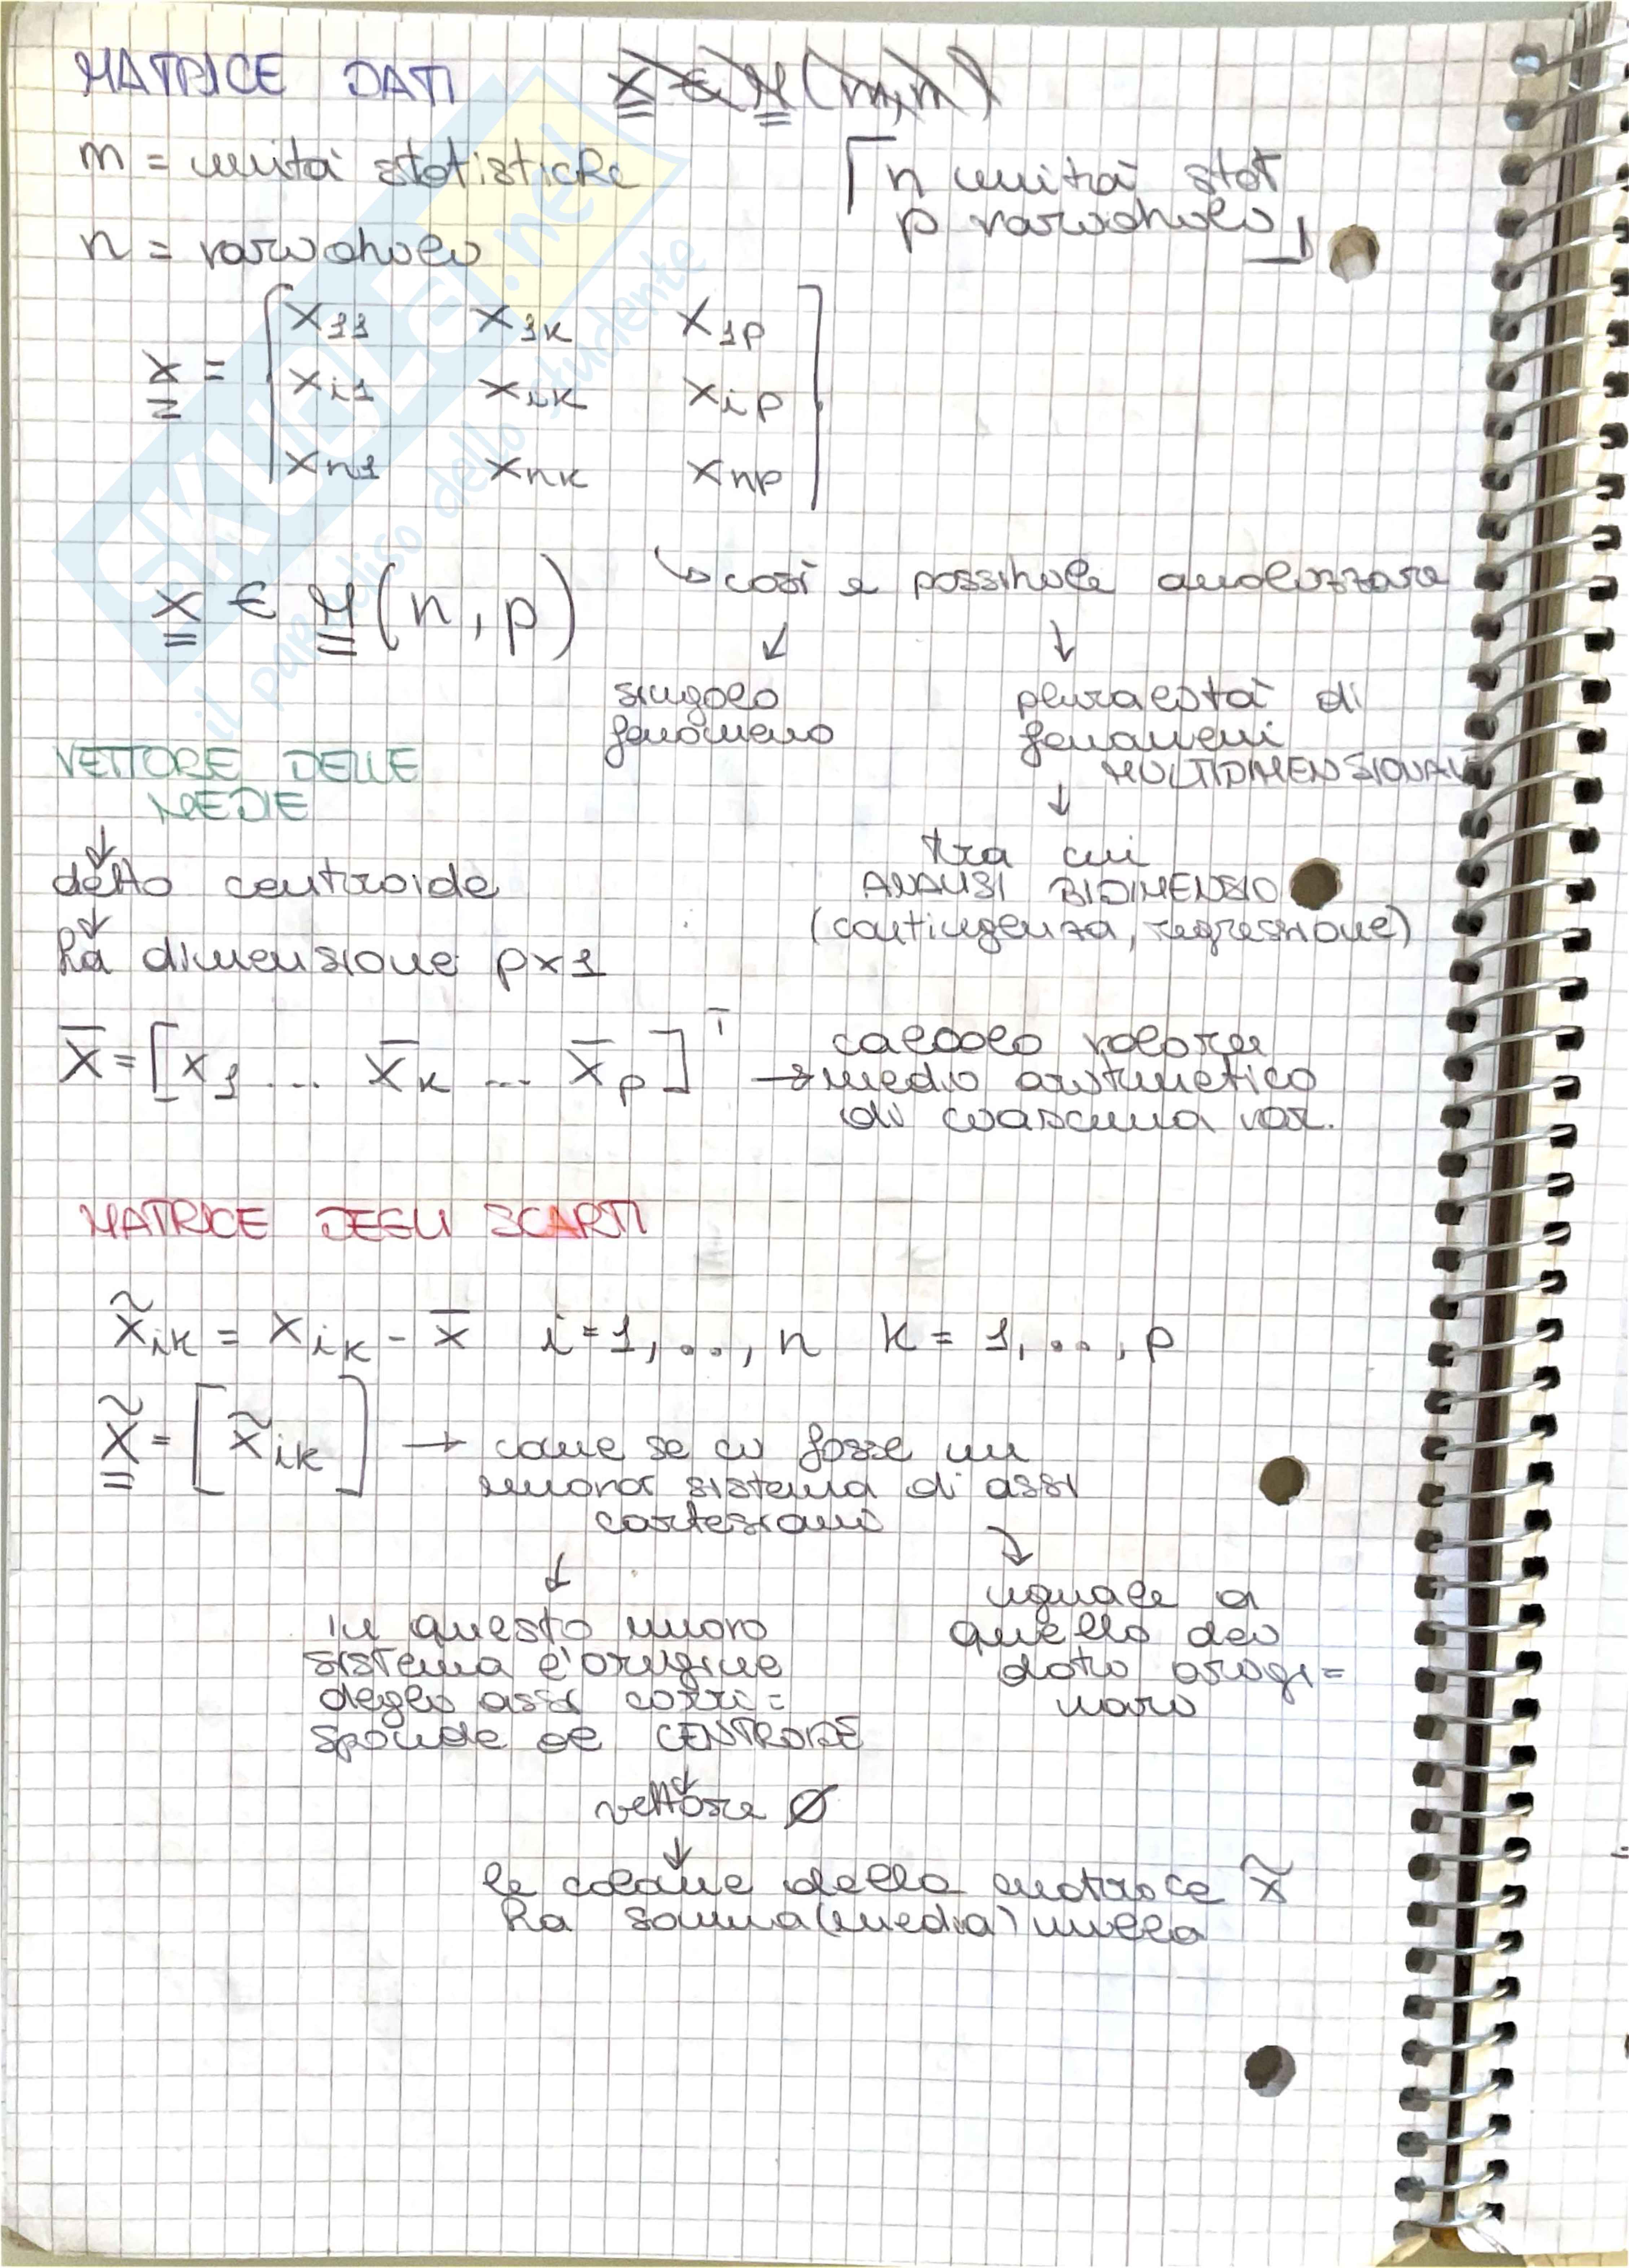 MATRICE DATI X ∈ M (m,n)
m = unità statistiche
n = variabili
n unità stat
p variabili
X = [ x11 x1k x1p
xi1 xik xip
xn1 xnk xnp ]
X ∈ M (n, p)
↳ così è possibile analizzare
↙ ↓
singolo
fenomeno
pluralità di
fenomeni
MULTIDIMENSIONALI
↓
tra cui
ANALISI BIDIMENSIO
(contingenza, regressione)
VETTORE DELLE
MEDIE
↓
detto centroide
↓
ha dimensione p×1
X̄ = [x1 ... x̄k ... x̄p]ᵀ → calcolo valore
medio aritmetico
di ciascuna var.
MATRICE DEGLI SCARTI
x̃ik = xik - x̄ i = 1, ..., n k = 1, ..., p
X̃ = [x̃ik] → come se ci fosse un
nuovo sistema di assi
cartesiani
↓
in questo nuovo
sistema l'origine
degli assi corri=
sponde al CENTROIDE
↓
vettore Ø
↓
le colonne della matrice x̃
ha somma (media) nulla
↘
uguale a
quello dei
dati origi=
nari
SKUOLA.net
il paradiso dello studente